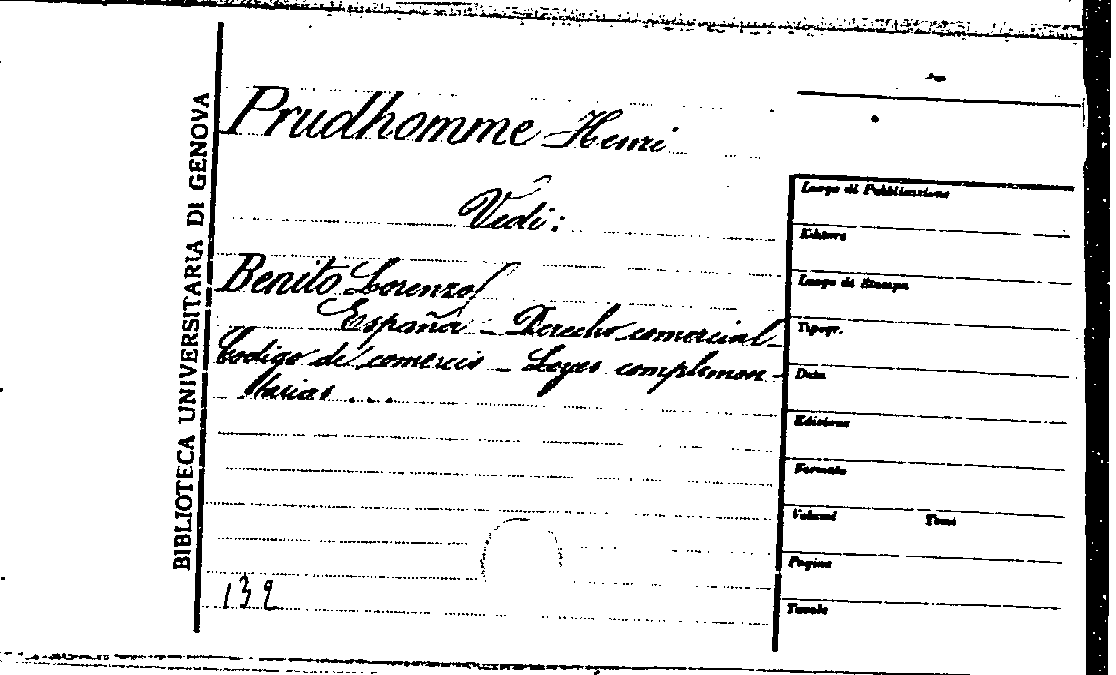 BIBLIOTECA UNIVERSITARIA DI GENOVA
Prudhomme Henri
Vedi:
Benito Lorenzo/
España - Derecho comercial -
Codigo de comercio - Leyes complemen-
tarias ...
139
Luogo di Pubblicazione
Editore
Luogo di Stampa
Tipogr.
Data
Edizione
Formato
Volumi Tomi
Pagine
Tavole